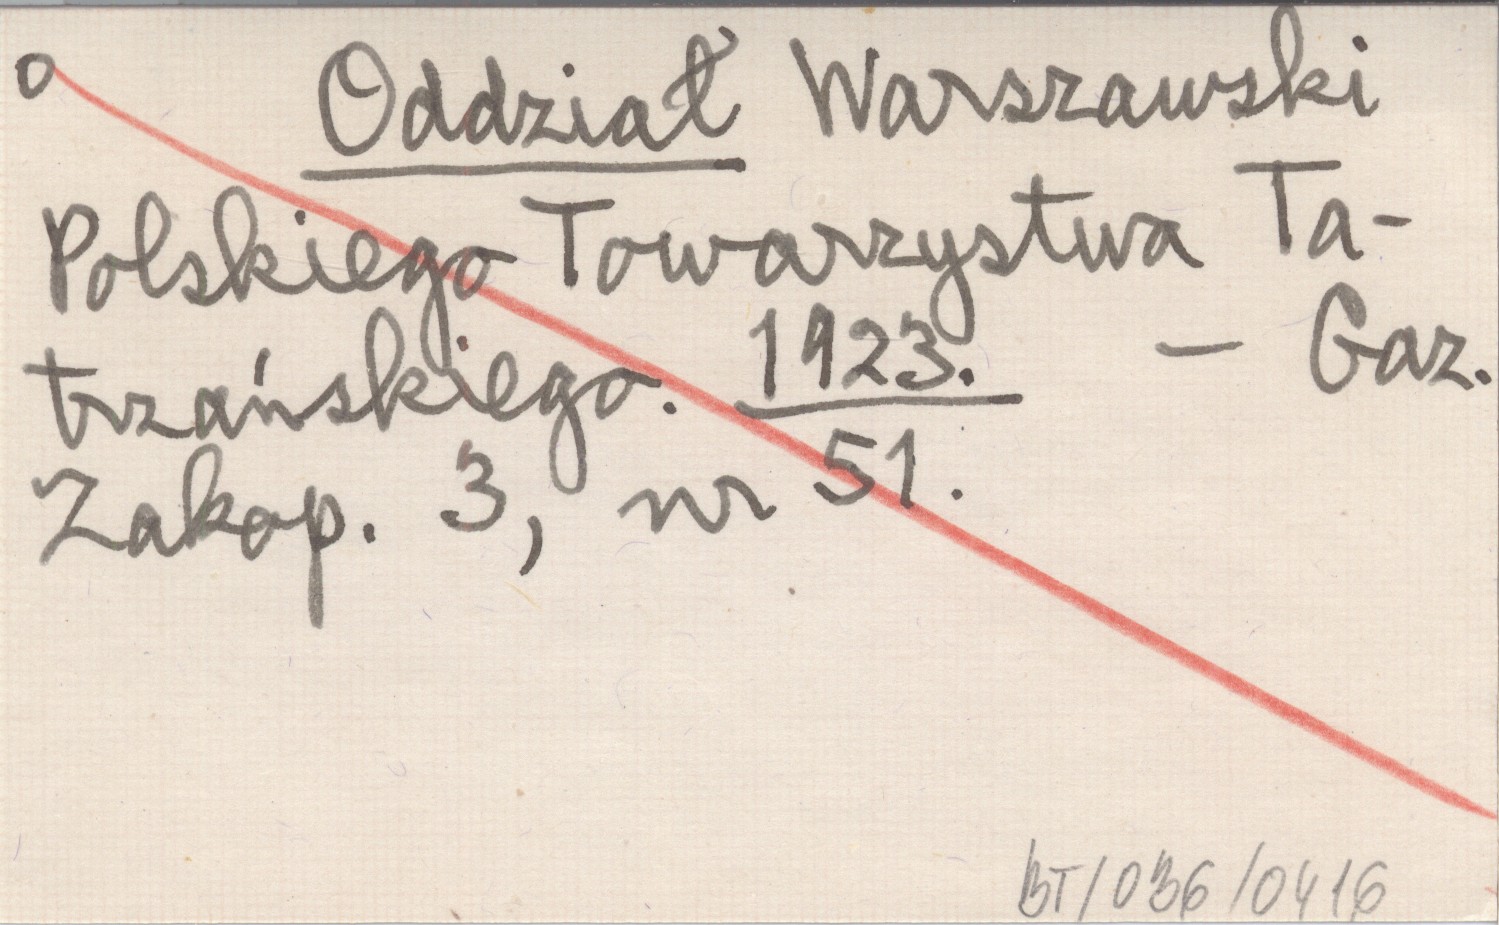 o Oddział Warszawski
Polskiego Towarzystwa Ta-
trzańskiego. 1923. – Gaz.
Zakop. 3, nr 51.
BT/036/0416